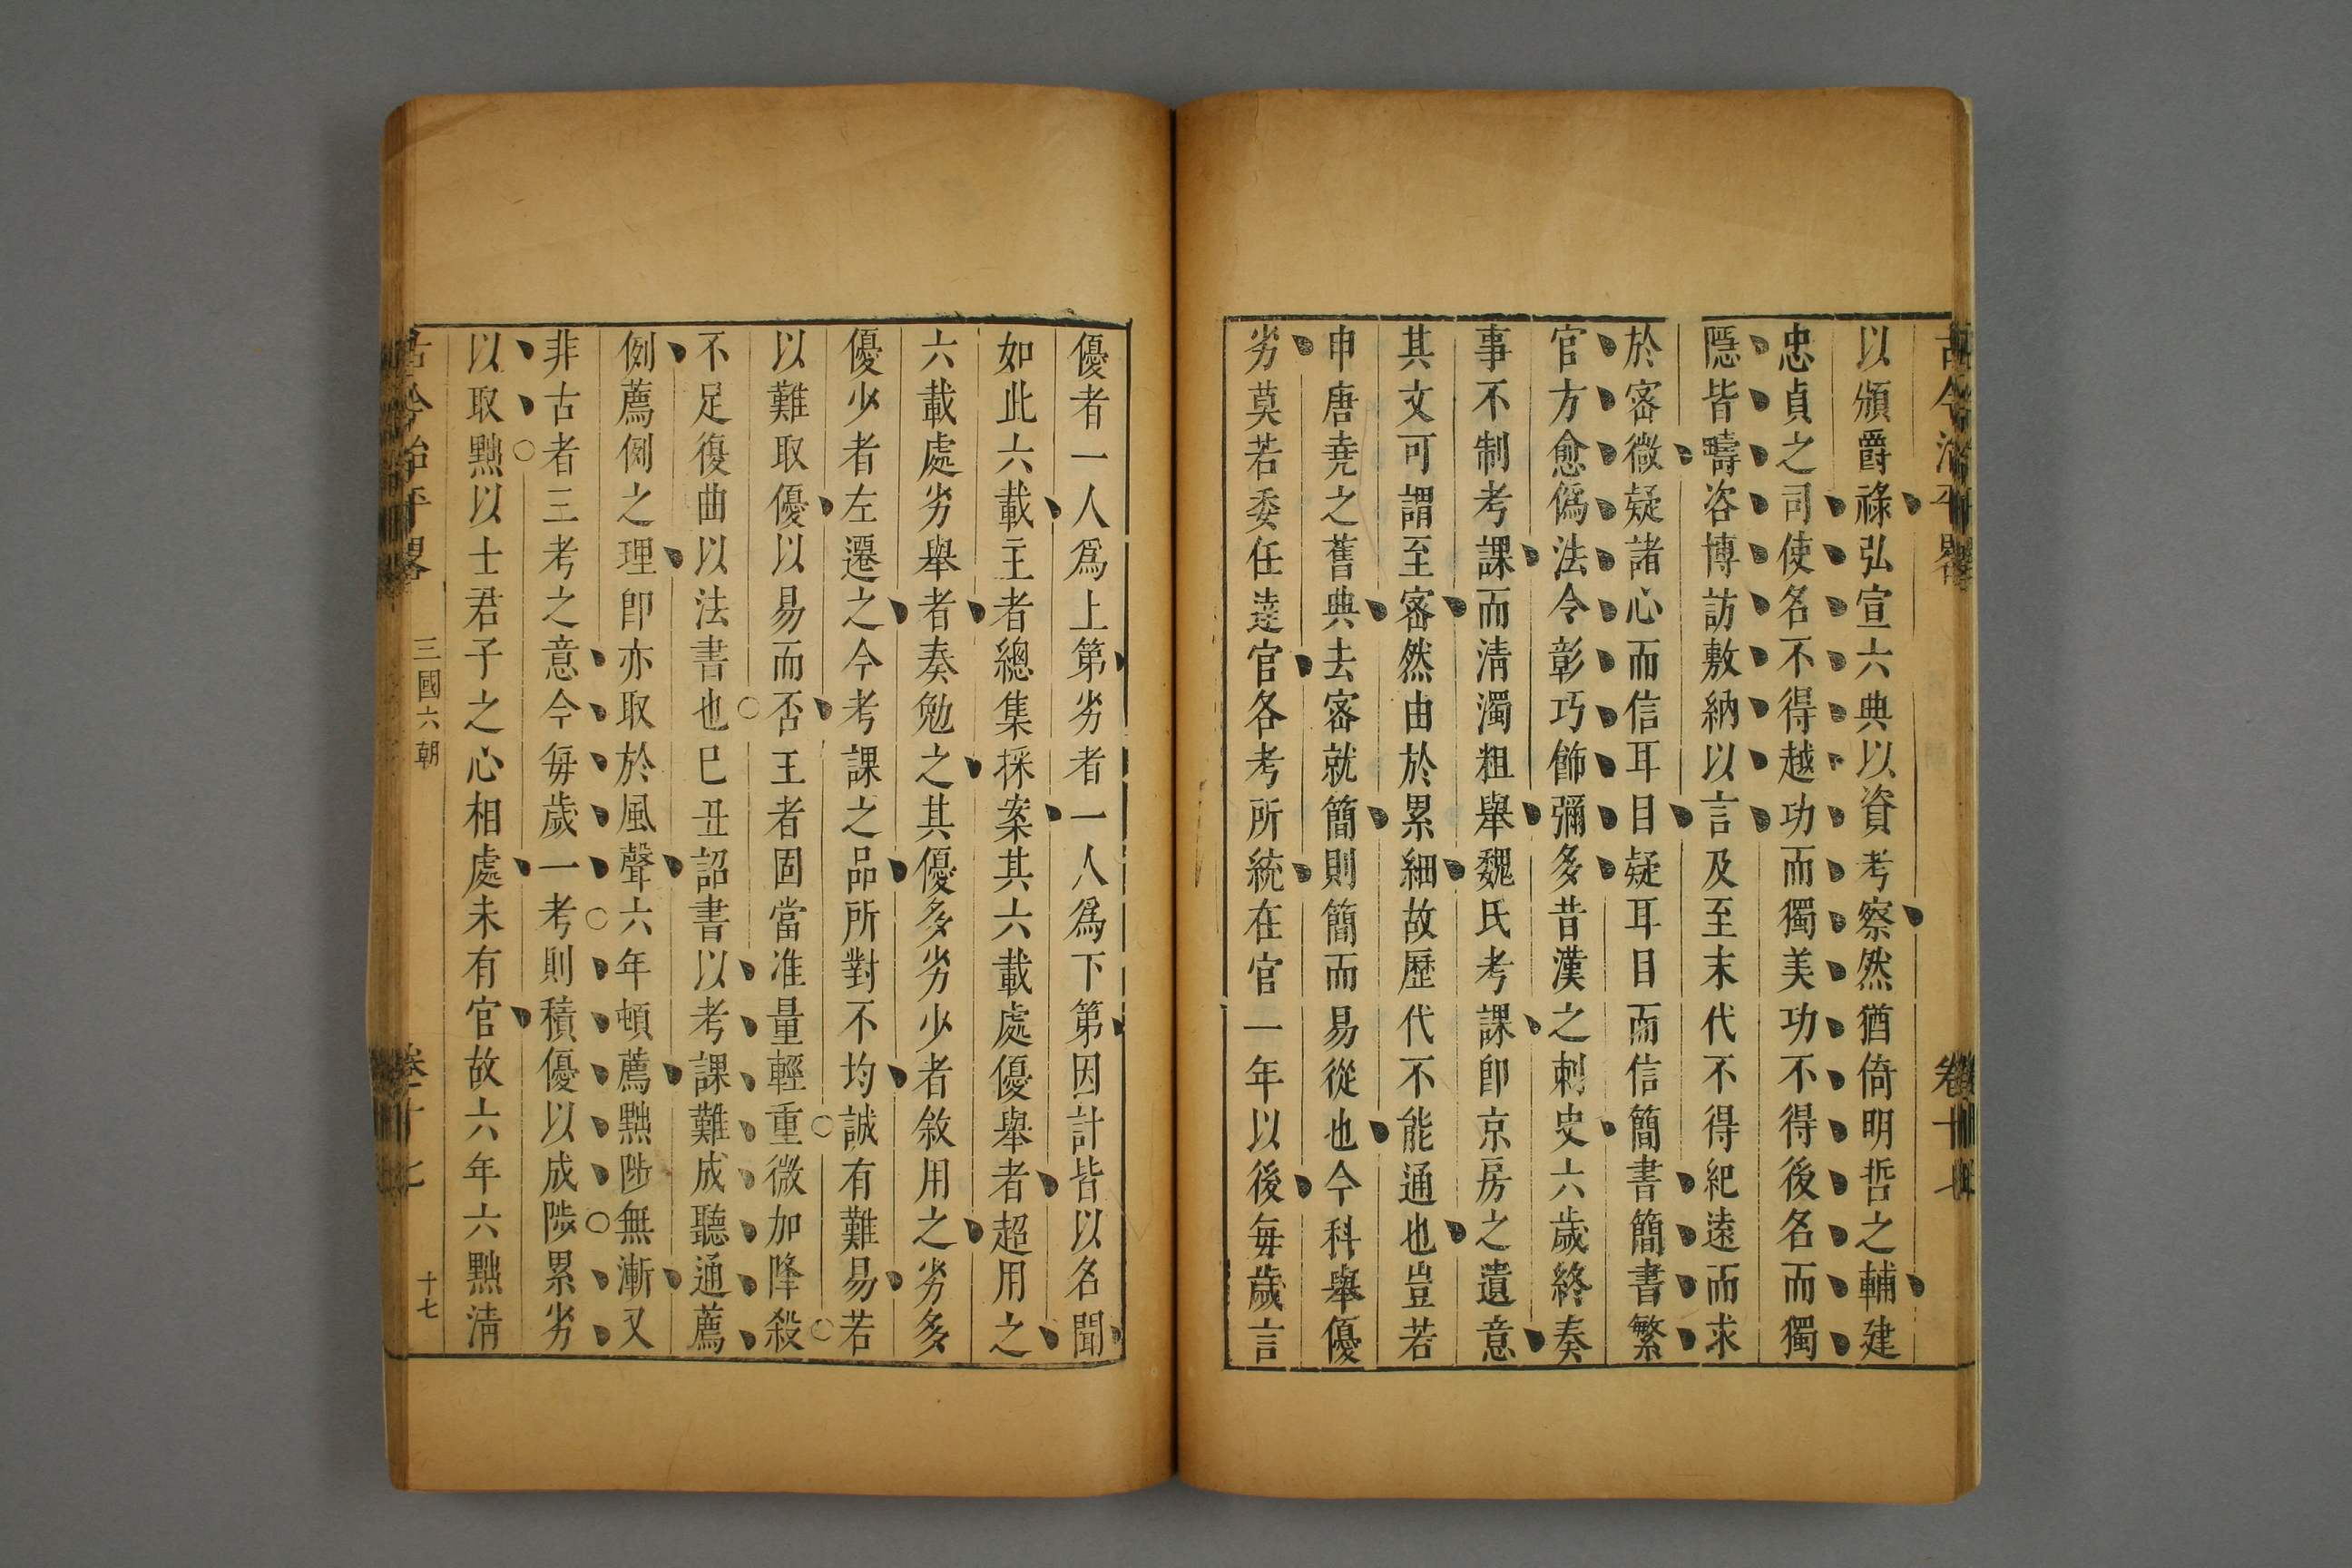 古今治平畧 卷十七
以頒爵祿弘宣六典以資考察然猶倚明哲之輔建
忠貞之司使名不得越功而獨美功不得後名而獨
隱皆疇咨博訪敷納以言及至末代不得紀遠而求
於密微疑諸心而信耳目疑耳目而信簡書簡書繁
官方愈僞法令彰巧飾彌多昔漢之刺史六歲終奏
事不制考課而淸濁粗舉魏氏考課卽京房之遺意
其文可謂至密然由於累細故歷代不能通也豈若
申唐堯之舊典去密就簡則簡而易從也今科舉優
劣莫若委任達官各考所統在官一年以後每歲言
優者一人爲上第劣者一人爲下第因計皆以名聞
如此六載主者總集採案其六載處優舉者超用之
六載處劣舉者奏勉之其優多劣少者敘用之劣多
優少者左遷之今考課之品所對不均誠有難易若
以難取優以易而否王者固當准量輕重微加降殺
不足復曲以法書也巳丑詔書以考課難成聽通薦
例薦例之理卽亦取於風聲六年頓薦黜陟無漸又
非古者三考之意今每歲一考則積優以成陟累劣
以取黜以士君子之心相處未有官故六年六黜淸
古今治平畧 三國六朝 卷十七 十七